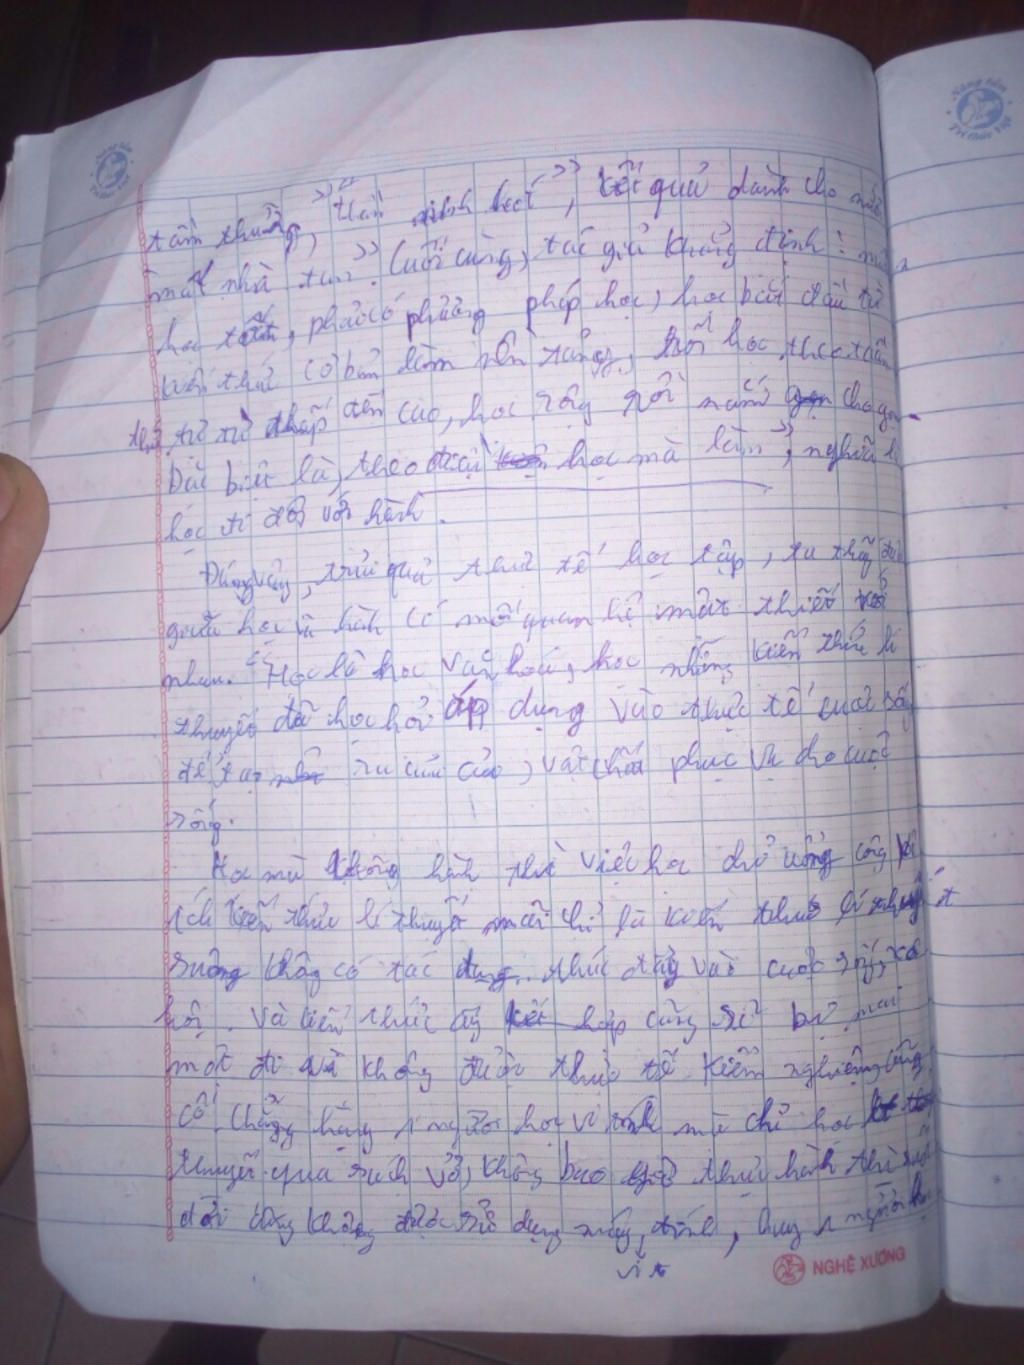 Nâng tầm
Trí thức Việt
Nâng tầm
Trí thức Việt
tầm thường, "thần", kết quả dành cho
mất nhà tan". Cuối cùng, tác giả khẳng định: muốn
học tốt, phải có phương pháp học, học bắt đầu từ
kiến thức cơ bản làm nền tảng, rồi học theo tuần
tự, từ thấp đến cao, học rộng rồi nắm cho gọn
Đặc biệt là, theo điều học mà làm", nghĩa là
học đi đôi với hành.
Đúng vậy, trải qua thực tế học tập, ta thấy được
giữa học và hành có mối quan hệ mật thiết với
nhau. "Học là học văn hoá, học những kiến thức lí
thuyết đã học hỏi áp dụng vào thực tế cuộc sống
để tạo ra của cải, vật chất phục vụ cho cuộc
sống.
Học mà không hành thì việc học chỉ uổng công vô
ích kiến thức lí thuyết mãi chỉ là kiến thức lí thuyết
suông không có tác dụng thúc đẩy vào cuộc sống, xã
hội. Và kiến thức ấy cũng sẽ bị mai
một đi và không được thực tế kiểm nghiệm, củng
cố. Chẳng hạn, 1 người học vi tính mà chỉ học
thuyết qua sách vở, không bao giờ thực hành thì suốt
đời cũng không được sử dụng máy tính, hay 1 người
vi
NGHỆ XƯƠNG